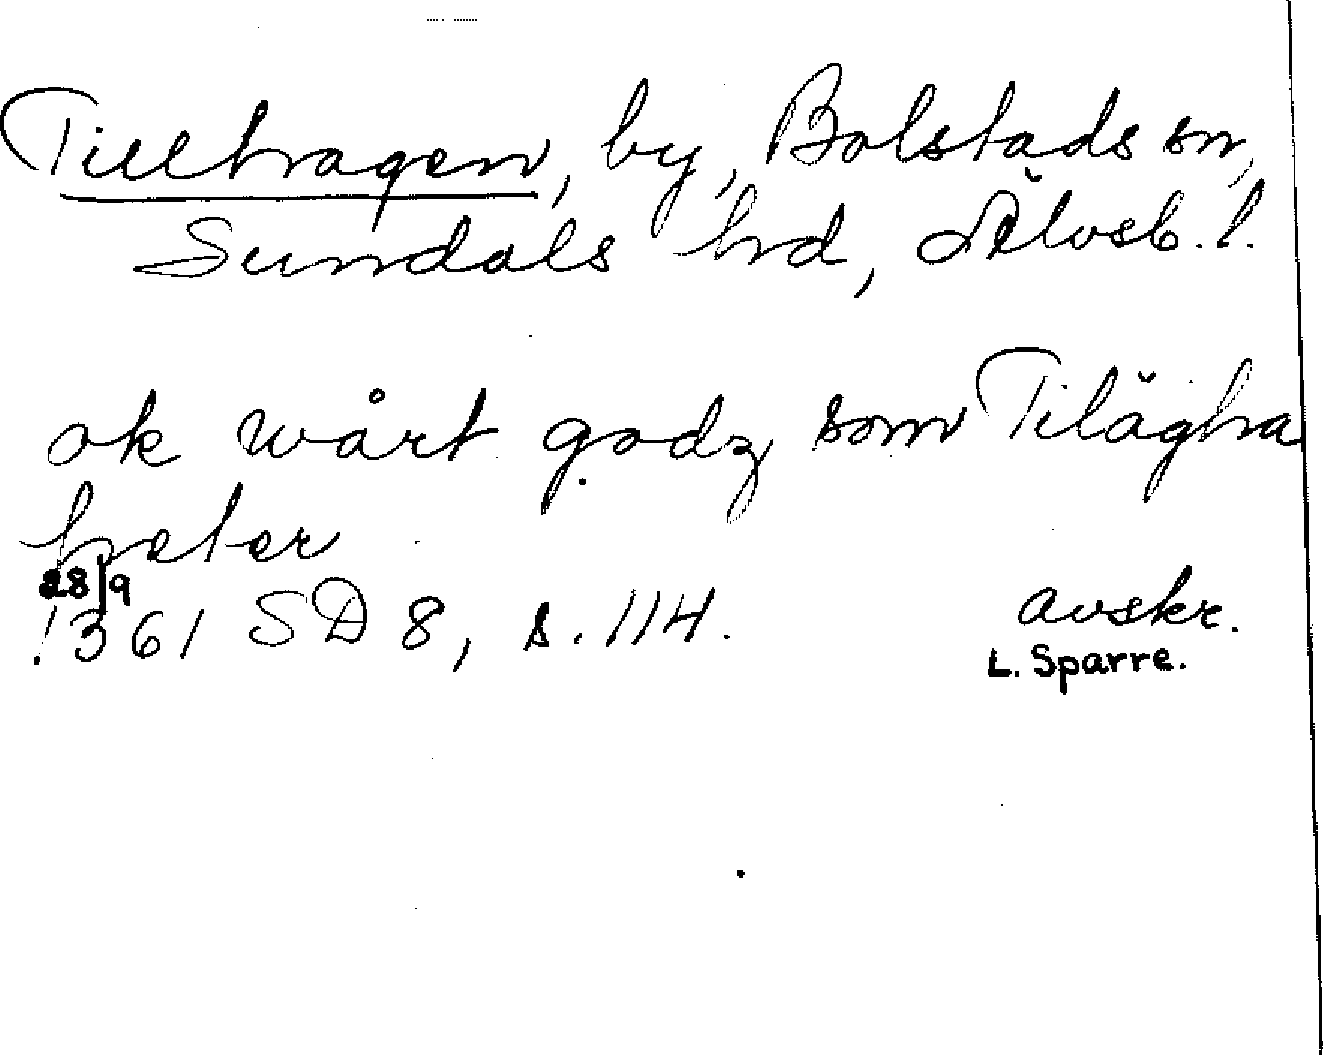 Tillhagen, by, Bolstads sn,
Sundals hd, Älvsb. l.
ok wårt godz som Tilägha
heter
28/9
1361 SD 8, s. 114.
avskr.
L. Sparre.